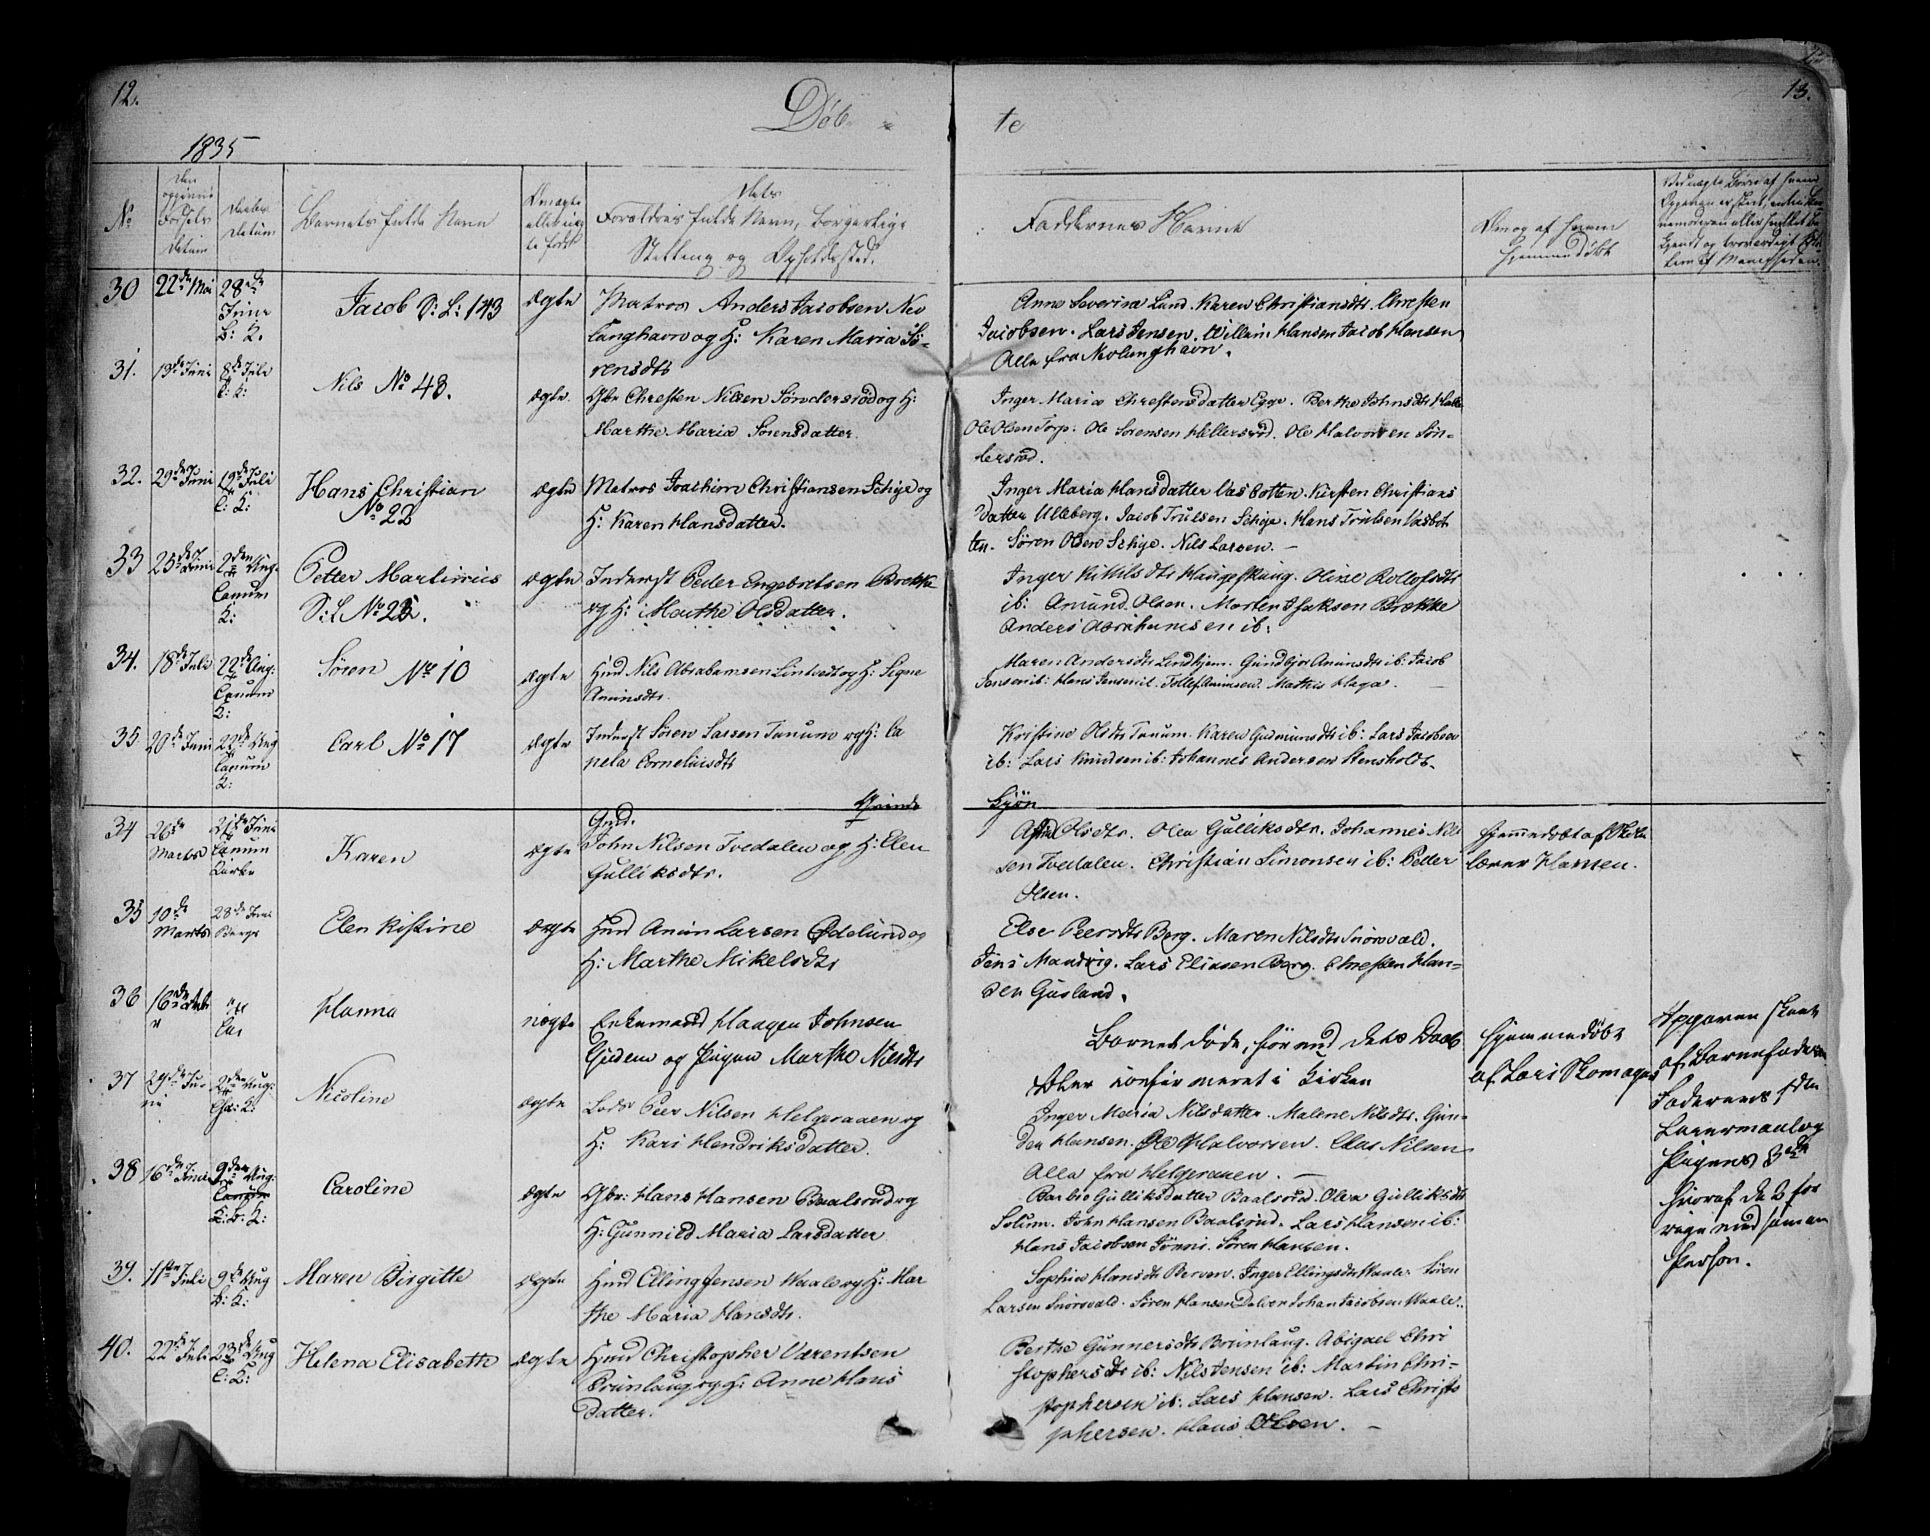 12.
Døb
te
13.
1835
No
Den opgivne Fødsels Datum
Daabs Datum
Barnets fulde Navn
Om ægte eller uægte født
Dets Forældres fulde Navn, borgerlige
Stilling og Opholdssted.
Faddernes Navne
Om og af hvem
hjemmedøbt
30
22de Mai
28de
Juni
B: K.
Jacob D: L: 143
ægte
Matros Anders Jacobsen Nev
langhavn og H: Karen Maria Sö-
rensdtr
Anne Severine Lund. Karen Christiansdtr. Chresten
Jacobsen. Lars Jensen. Willum Hansen Jacob Hansen
Alle fra Nevlunghavn.
31.
19de Juni
8de Juli
Nils No 48.
ægte
Gbr Chresten Nilsen Söndersrød og H:
Marthe Maria Sörensdatter.
Inger Maria Chrestensdatter Ege. Berthe Johnsdtr
Ole Olsen Torp. Ole Sörensen Hillersrød. Ole Halvorsen Sön-
dersrød.
32.
29de Juni
19de Juli
Hans Christian
No 22
ægte
Matros Joachim Christiansen Schye og
H: Karen Hansdatter.
Inger Maria Hansdatter Vasbotten. Kirsten Christians
datter Ulleberg. Jacob Trulsen Schye. Hans Trulsen Vasbot
ten. Sören Olsen Schye. Nils Larsen. —
33
25de Juni
2den Aug.
Tanum
K:
Petter Martinius
D: L No 22.
ægte
Inderst Peder Engebretsen Brekke
og H: Marthe Olsdatter.
Inger Kittilsdtr Haugeskaug. Oline Rollefsdtr
ib: Amund Olsen. Morten Isaksen Brekke
Anders Abrahamsen ib:
34.
18de Juli
22de Aug:
Tanum
K:
Sören No 10
ægte
Hmd Nils Abrahamsen Lintvedt og H: Signe
Amunsdtr.
Maren Andersdtr Lindhjem. Gundbjör Amunsdtr ib: Jacob
Jansen ib: Hans Jensen ib. Tollef Amunsen. Mathis Haga. —
35
20de Juni
22de Aug
Tanum
K:
Carl No 17
ægte
Inderst Sören Larsen Tanum og H: Ca
nela Cornelius dtr
Kristine Olsdtr Tanum. Karen Gudmunsdtr ib: Lars Jacobsen
ib: Lars Knudsen ib: Johannes Andersen Stensholdt.
Qvinde
Kjøn
34
26de
Marts
21de Juni
Tanum
Kirke
Karen
ægte
Gmd.
John Nilsen Tvedalen og H: Elen
Gulliksdtr.
Olsdtr. Olea Gulliksdtr. Johannes Nil
sen Tvedalen. Christian Simonsen ib: Peder
Olsen.
hjemmedøbt af Skole
lærer Hansen.
35
10de
Marts
28de Juni
Berge
Elen Kistine
ægte
Hmd Amun Larsen Ødelund og
H: Marthe Mikelsdtr
Else Peersdtr Berg. Maren Nilsdtr Snørsvald.
Jens Manvig. Lars Eliasen Berg. Chresten Han-
sen Gusland.
36
Hanna
uægte
Enkemand Haagen Johnsen
Gjeden og Pigen Marthe Nilsdtr
Barnet døde, før end dets Daab
blev confirmeret i Kirken
hjemmedøbt
af Lars Skomager
Opgaven skeet
af Barnefaderen
Faderens 1ste
Leiermaal og
Pigens 3die
hvoraf de 2 for
rige med samme
Person.
37
29de Ju
ni
2den Aug:
Nicoline
ægte
Lods Peer Nilsen Helgeraaen og
H: Kari Hendriksdatter.
Inger Maria Nilsdatter. Malene Nilsdtr. Gun-
der Hansen. Ole Halvorsen. Claus Nilsen
Alle fra Helgeraaen. —
38
16de Juni
9den Aug:
Tanum
B: K:
Caroline
ægte
Gbr: Hans Hansen Baalsrud og
H: Gunnild Maria Larsdatter
Barbro Gulliksdatter Baalsrud. Olea Gulliksdtr
Solum. John Hansen Baalsrud. Lars Hansen ib:
Hans Jacobsen Jönni. Sören Hansen.
39.
11te Juli
9de Aug
B: K:
Maren Birgitte
ægte
Hmd Elling Jensen Waale og H: Mar
the Maria Hansdtr.
Sophia Hansdtr Berven. Inger Ellingsdtr Waale. Sören
Larsen Snørsvald. Sören Hansen Dolven Johan Jacobsen Waale.
40.
22de Juli
23de Aug
Helena Elisabeth
ægte
Hmd Christopher Værentsen
Brunlaug og H: Anne Hans
datter.
Berthe Gunnersdtr Brunlaug. Abigael Chri
stophersdtr ib: Nils Jensen ib: Martin Chri-
stophersen ib: Lars Hansen. Lars Christo
phersen. Hans Olsen. —